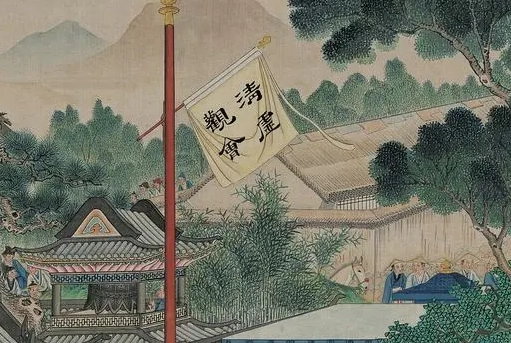 清虛
觀會